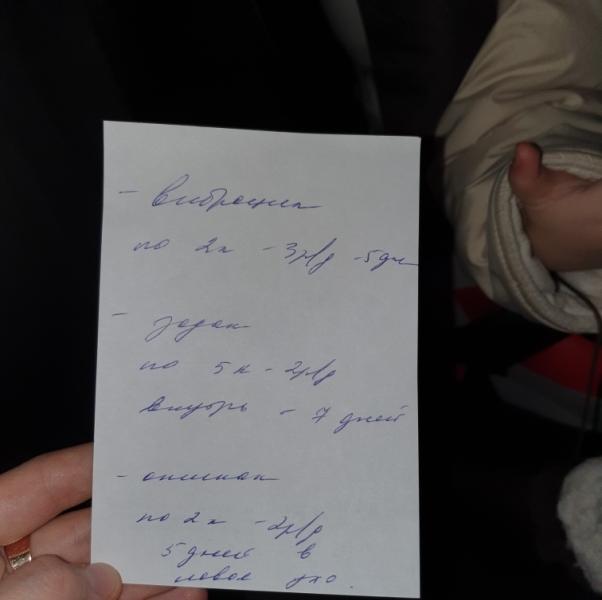 - виброцил
по 2к - 3р/д - 5дн
- зодак
по 5к - 2р/д
внутрь - 7 дней
- 
по 2к - 2р/д
5 дней в
левое ухо.